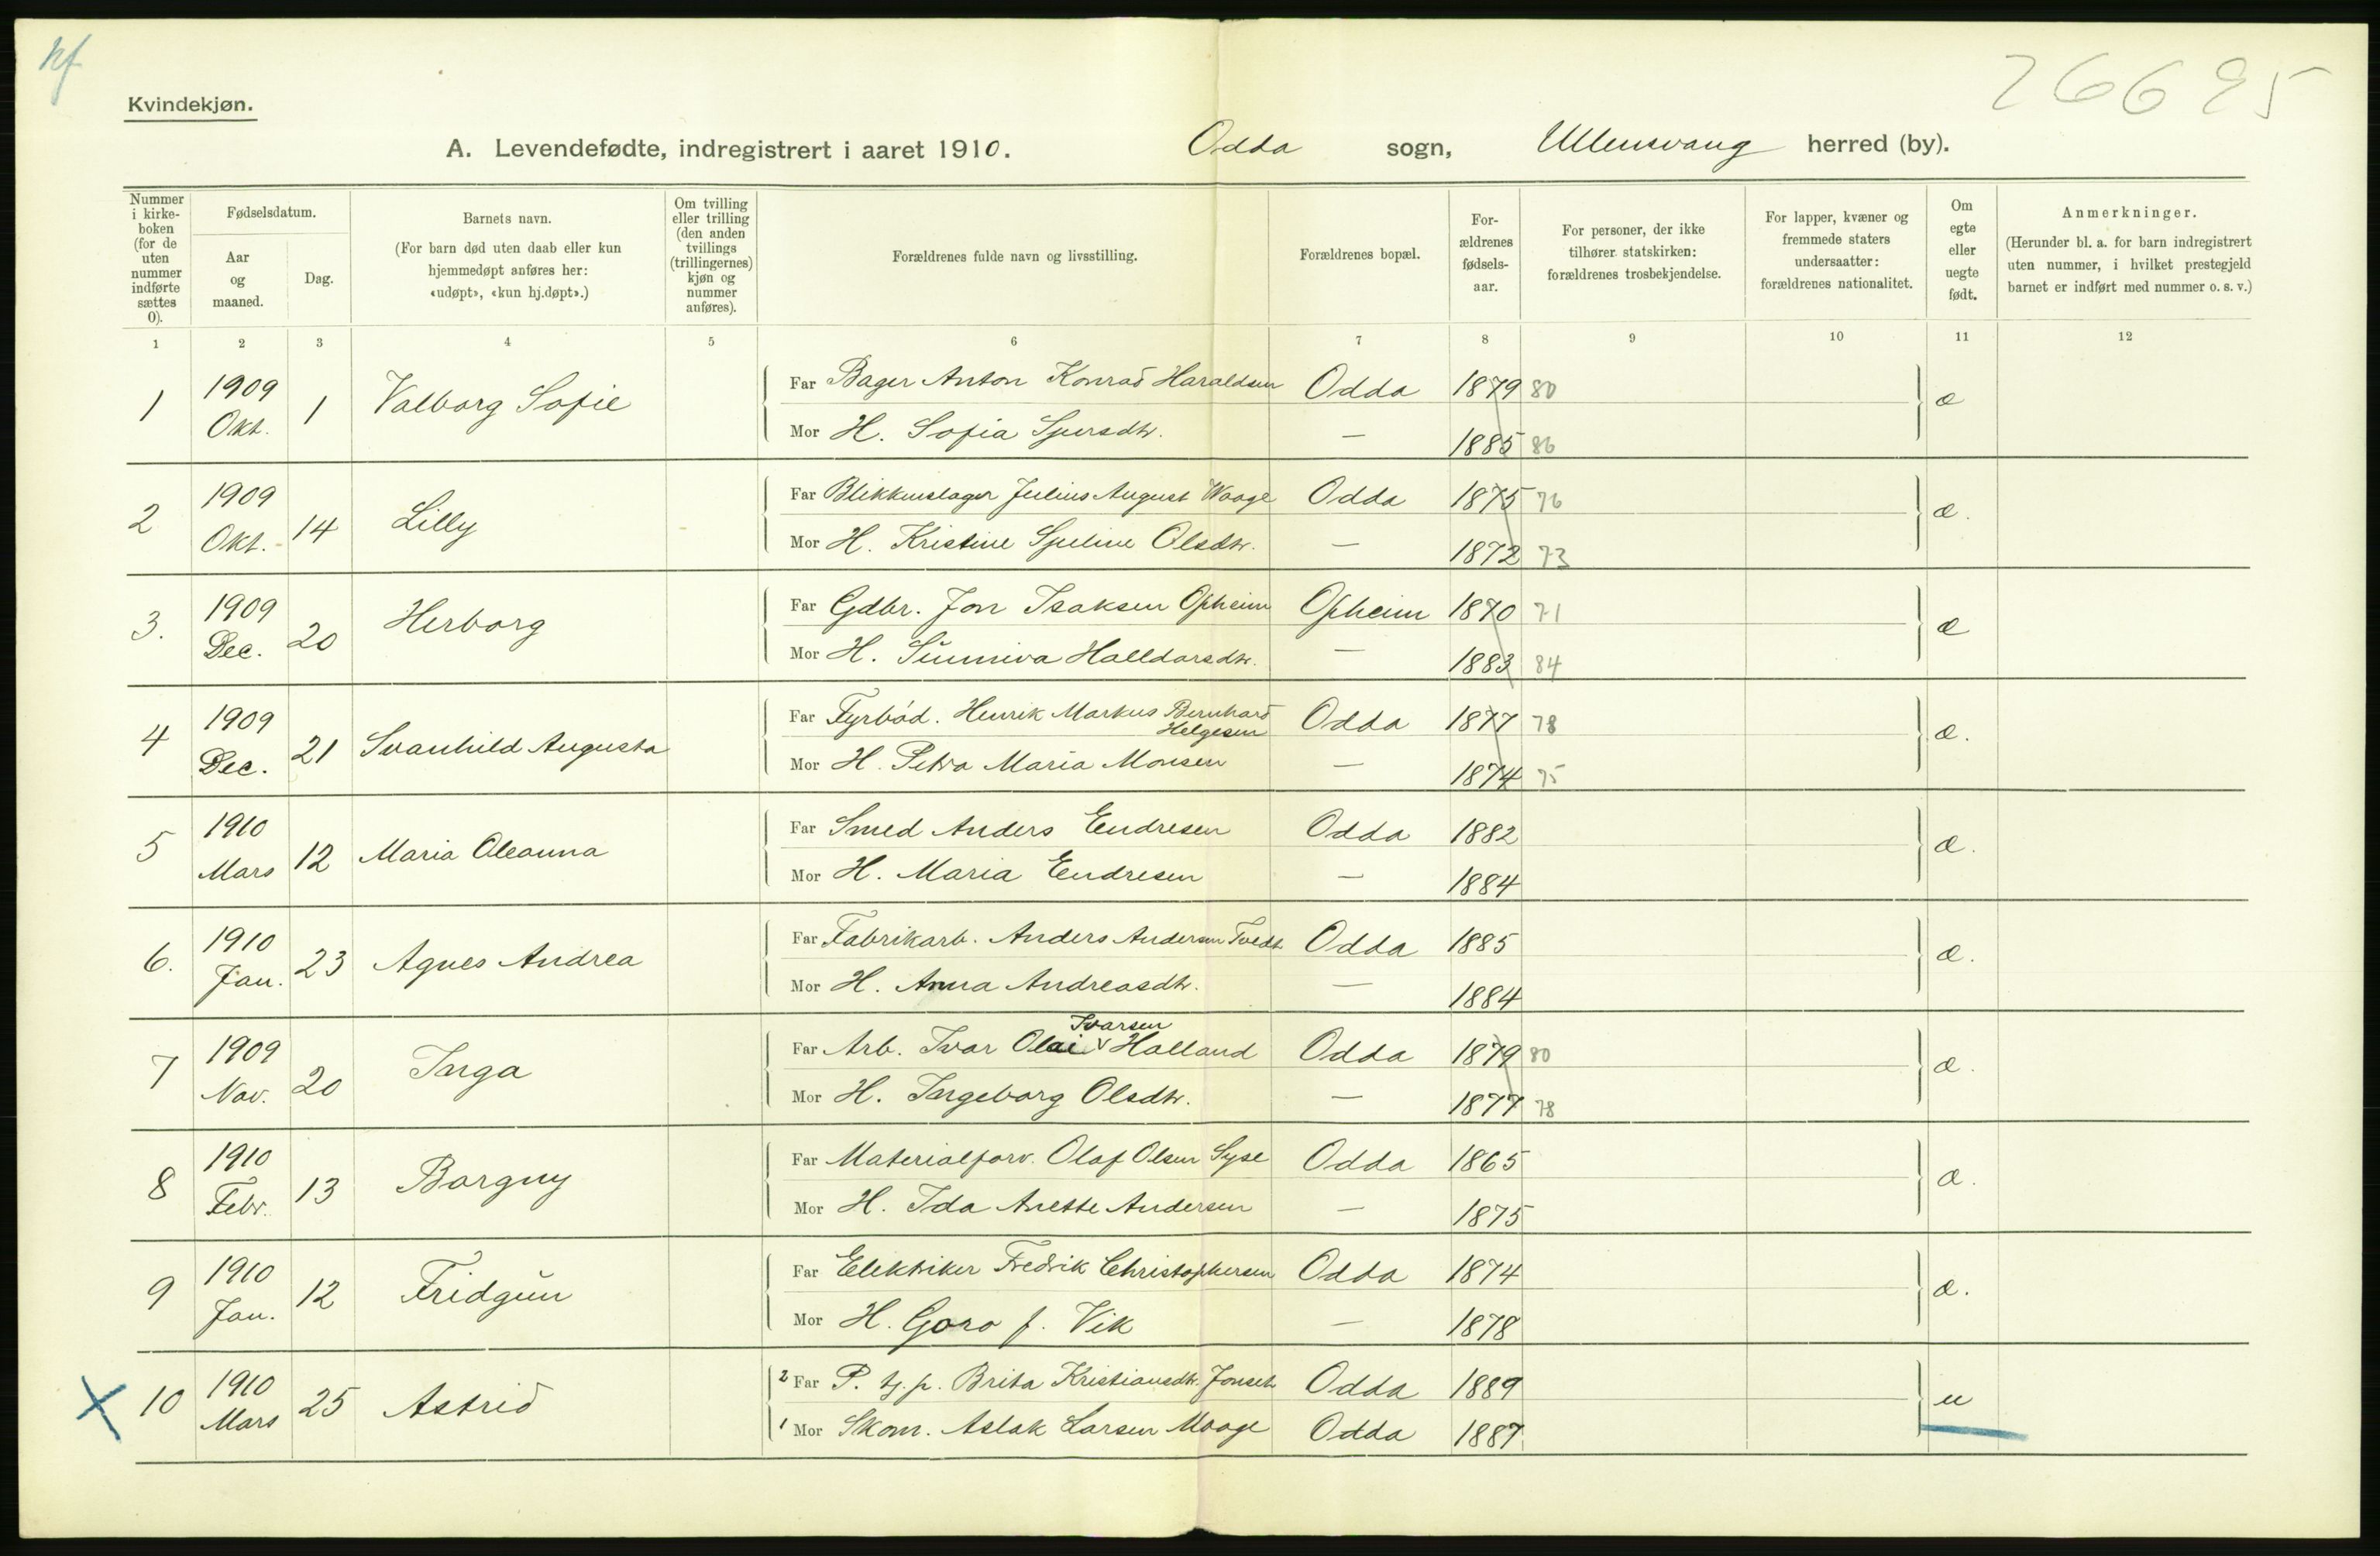 Kvindekjøn.
26695
A. Levendefødte, indregistrert i aaret 1910. Odda sogn, Ullensvang herred (by).
Nummer i kirkeboken (for de uten nummer indførte sættes 0).
Fødselsdatum.
Aar og maaned.
Dag.
Barnets navn.
(For barn død uten daab eller kun hjemmedøpt anføres her: «udøpt», «kun hj.døpt».)
Om tvilling eller trilling (den anden tvillings (trillingernes) kjøn og nummer anføres).
Forældrenes fulde navn og livsstilling.
Forældrenes bopæl.
Forældrenes fødselsaar.
For personer, der ikke tilhører statskirken: forældrenes trosbekjendelse.
For lapper, kvæner og fremmede staters undersaatter: forældrenes nationalitet.
Om egte eller uegte født.
Anmerkninger.
(Herunder bl. a. for barn indregistrert uten nummer, i hvilket prestegjeld barnet er indført med nummer o. s. v.)
1 2 3 4 5 6 7 8 9 10 11 12
1 1909 Okt. 1 Valborg Sofie Far Bager Anton Konrad Haraldsen Odda 1879 80 æ
Mor H. Sofia Sjursdtr. — 1885 86
2 1909 Okt. 14 Lilly Far Blikkenslager Julius August Waage Odda 1875 76 æ.
Mor H. Kristine Olsdtr. — 1872 73
3. 1909 Dec. 20 Herborg Far Gdbr. Jon Isaksen Opheim Opheim 1870 71 æ
Mor H. Sunniva Halldorsdtr. — 1883 84
4 1909 Dec. 21 Svanhild Augusta Far Fyrbød. Henrik Markus Bernhard Helgesen Odda 1877 78 æ.
Mor H. Petra Maria Monsen — 1874 75
5 1910 Mars 12 Maria Oleanna Far Smed Anders Endresen Odda 1882 æ.
Mor H. Maria Endresen — 1884
6. 1910 Jan. 23 Agnes Andrea Far Fabrikarb. Anders Andersen Tvedt Odda 1885 æ.
Mor H. Anna Andreasdtr. — 1884
7 1909 Nov. 20 Inga Far Arb. Ivar Olai Ivarsen Halland Odda 1879 80 æ.
Mor H. Ingeborg Olsdtr. — 1877 78
8 1910 Febr. 13 Borgny Far Materialforv. Olaf Olsen Syse Odda 1865 æ.
Mor H. Ida Anette Andersen — 1875
9 1910 Jan. 12 Fridgun Far Elektriker Fredrik Christophersen Odda 1874 æ.
Mor H. Goro f. Vik — 1878
X 10 1910 Mars 25 Astrid 2 Far P. tj. p. Brita Kristiansdtr. Odda 1889 u
1 Mor Skom. Aslak Larsen Maage Odda 1887